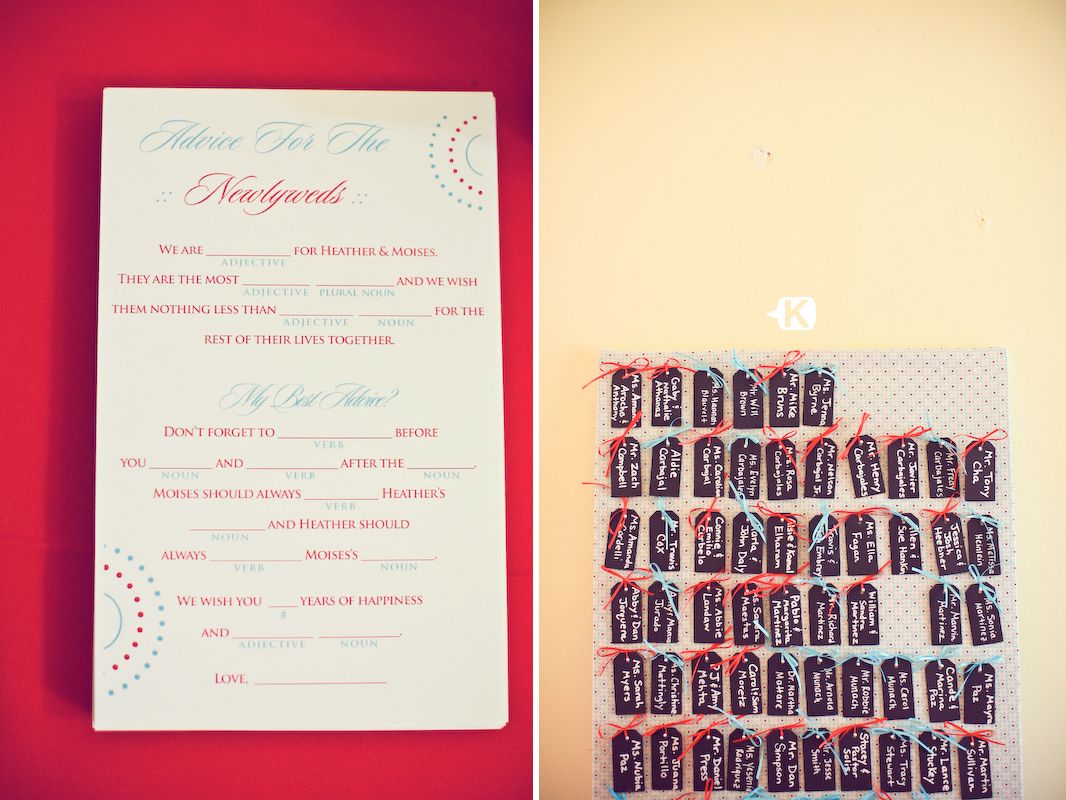 Advice For The
Newlyweds
WE ARE ____________ FOR HEATHER & MOISES.
ADJECTIVE
THEY ARE THE MOST __________ ____________ AND WE WISH
ADJECTIVE PLURAL NOUN
THEM NOTHING LESS THAN __________ __________ FOR THE
ADJECTIVE NOUN
REST OF THEIR LIVES TOGETHER.
My Best Advice?
DON'T FORGET TO ________________ BEFORE
VERB
YOU _________ AND _____________ AFTER THE ________.
NOUN VERB NOUN
MOISES SHOULD ALWAYS __________ HEATHER'S
VERB
__________ AND HEATHER SHOULD
NOUN
ALWAYS ___________ MOISES'S __________.
VERB NOUN
WE WISH YOU ____ YEARS OF HAPPINESS
#
AND ___________ ___________.
ADJECTIVE NOUN
LOVE, __________________
K
Arocho & Anthony
Gaby & Nathalie Athanas
Ms. Hannah Blauvelt
Mr. Will Brown
Mr. Mike Bruns
Ms. Jenna Byrne
Mr. Zach Campbell
Aldie Carbajal
Ms. Carolina Carbajal
Ms. Evelyn Carbajales
Ms. Rosa Carbajales
Mr. Nelson Carbajal Jr.
Mr. Henry Carbajales
Mr. Javier Carbajales
Mr. Frank Carbajales
Mr. Tony Cha
Ms. Amanda Cordelli
Mr. Travis Cox
Connie & Emilio Curbelo
John Daly
Elharam
Embrey
Ms. Ella Fagan
Sue Hankin
Jessica & Josh Heebner
Ms. Melissa Heinlein
Abby & Dan Jorguera
Jurado
Ms. Abbie Landaw
Ms. Sandra Maestas
Pablo & Margarita Martinez
Mr. Richard Martinez
William & Sandra Martinez
Mr. Marvin Martinez
Ms. Sonia Martinez
Ms. Sarah Myers
Ms. Christine Mattingly
PJ & Amy Mehta
Carol & Sam Moretz
Dr. Martha Mottore
Mr. Arnold Munach
Mr. Robbie Munach
Ms. Carol Munach
Cande & Marina Paz
Ms. Mayra Paz
Ms. Nubia Paz
Ms. Juana Portillo
Mr. Daniel Press
Ms. Yesenia Rodriguez
Mr. Dan Simpson
Mr. Jesse Smith
Stacey & Pastor Solis
Ms. Tracy Stewart
Mr. Lance Stuckey
Mr. Martin Sullivan